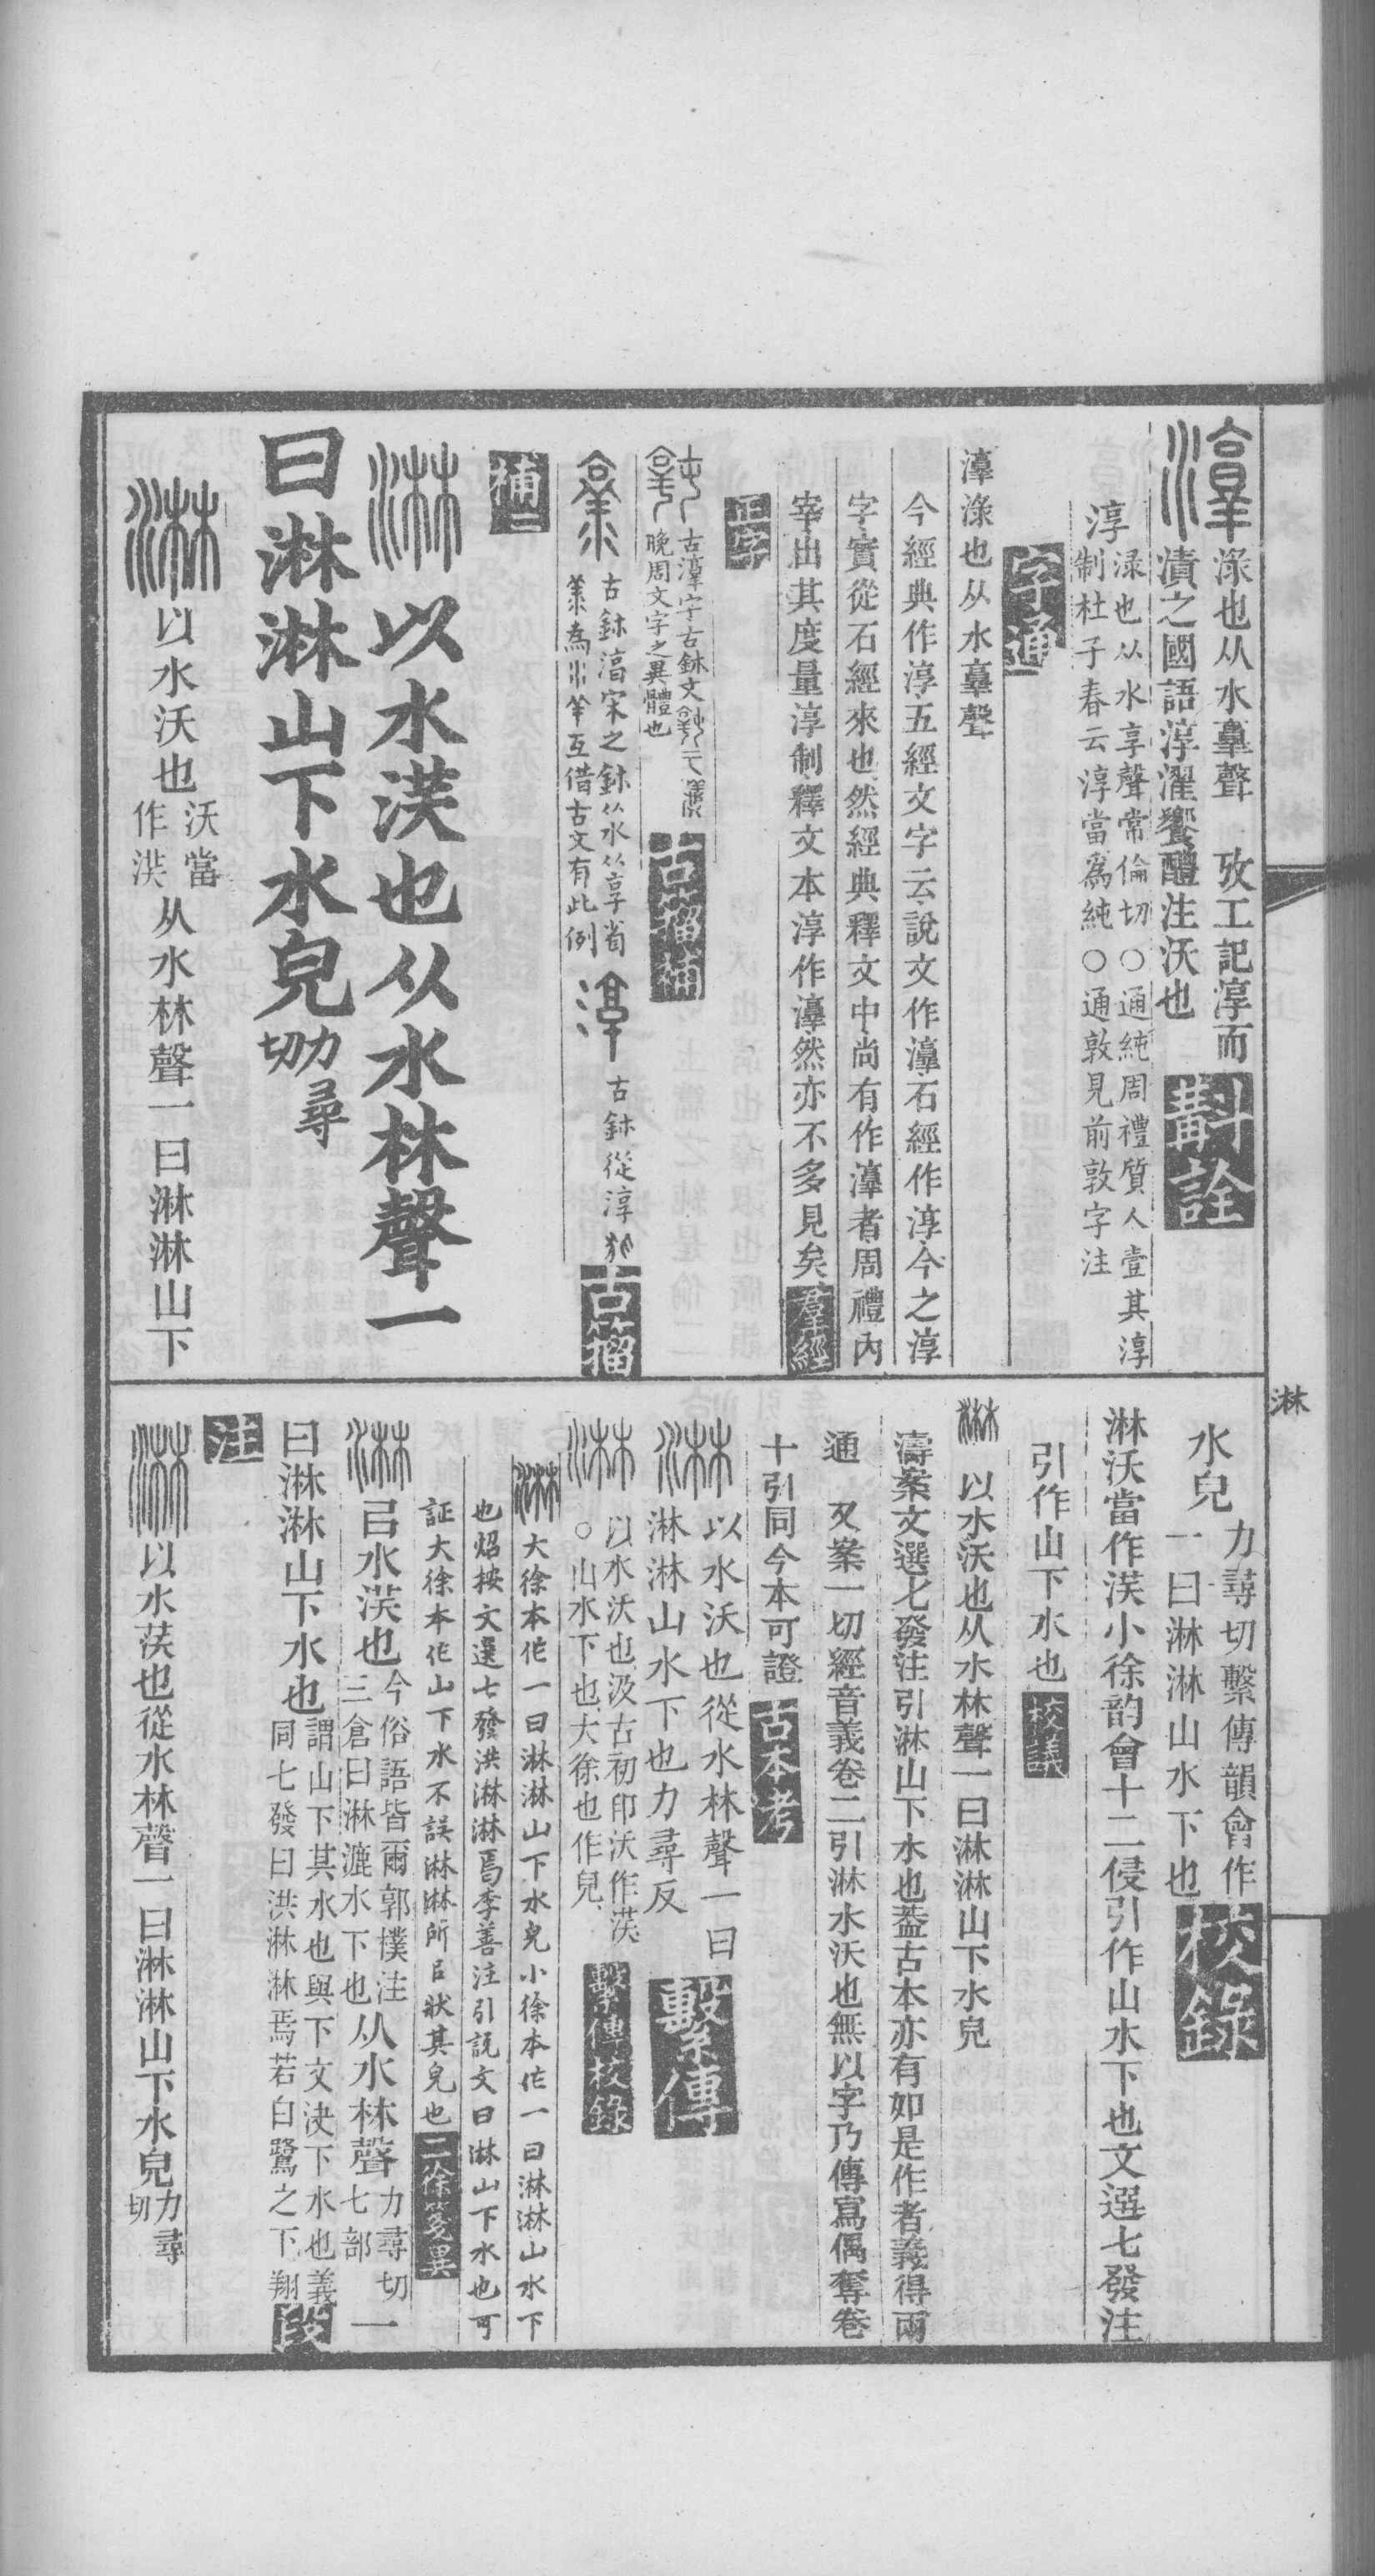 淥也从水𦎫聲 攷工記淳而
漬之國語淳濯饗醴注沃也
斠詮
淳
淥也从水享聲常倫切○通純周禮質人壹其淳
制杜子春云淳當為純○通敦見前敦字注
字通
𤃩淥也从水𦎫聲
今經典作淳五經文字云說文作𤃩石經作淳今之淳
字實從石經來也然經典釋文中尚有作𤃩者周禮內
宰出其度量淳制釋文本淳作𤃩然亦不多見矣
羣經
正字
古𤃩字古鉥文
晚周文字之異體也
古籀補
古鉥
宋之鉥从水从享省
互借古文有此例
古鉥從淳
古籀
補二
以水䓇也从水林聲一
曰淋淋山下水皃
力尋
切
以水沃也
沃當
作䓇
从水林聲一曰淋淋山下
淋
水皃
力尋切繫傳韻會作
一曰淋淋山水下也
校錄
淋沃當作䓇小徐韵會十二侵引作山水下也文選七發注
引作山下水也
校議
以水沃也从水林聲一曰淋淋山下水皃
濤案文選七發注引淋山下水也葢古本亦有如是作者義得兩
通 又案一切經音義卷二引淋水沃也無以字乃傳寫偶奪卷
十引同今本可證
古本考
以水沃也從水林聲一曰
淋淋山水下也力尋反
繫傳
以水沃也汲古初印沃作䓇
○山水下也大徐也作皃
繫傳校錄
大徐本作一曰淋淋山下水皃小徐本作一曰淋淋山水下
也炤按文選七發洪淋淋焉李善注引說文曰淋山下水也可
証大徐本作山下水不誤淋淋所㠯狀其皃也
二徐箋異
㠯水䓇也
今俗語皆爾郭樸注
三倉曰淋漉水下也
从水林聲
力尋切
七部
一
曰淋淋山下水也
謂山下其水也與下文決下水也義
同七發曰洪淋淋焉若白鷺之下翔
段
注
以水䓇也從水林聲一曰淋淋山下水皃
力尋
切